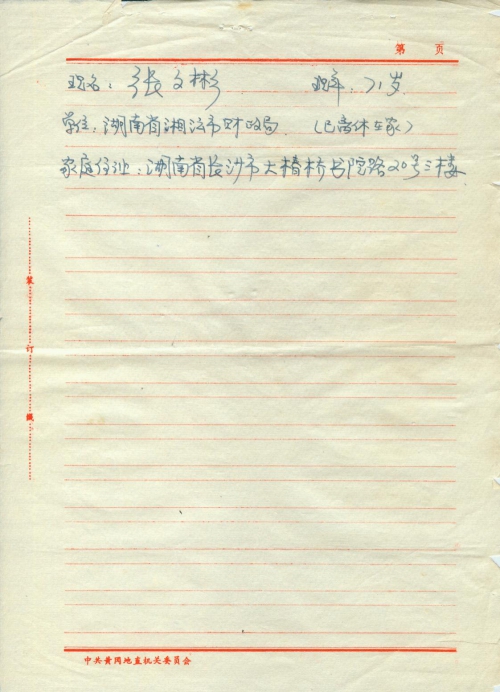 第 页
现名：张文彬 现年：71岁
单位：湖南省湘江市财政局 （已离休在家）
家庭住址：湖南省长沙市大椿桥书院路20号三楼
装
订
线
中共黄冈地直机关委员会